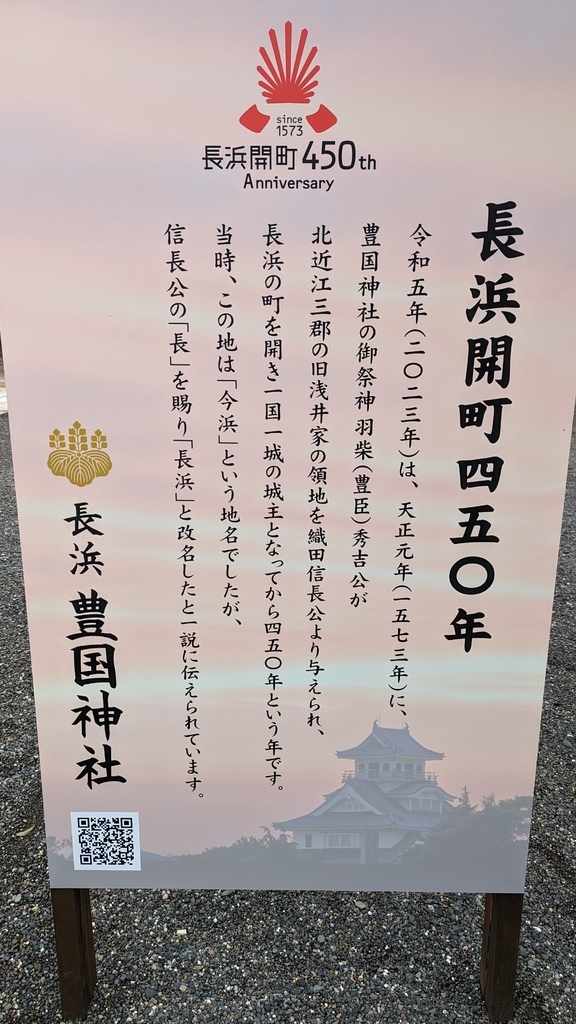 since
1573
長浜開町450th
Anniversary
長浜開町四五〇年
令和五年(二〇二三年)は、天正元年(一五七三年)に、
豊国神社の御祭神 羽柴(豊臣)秀吉公が
北近江三郡の旧浅井家の領地を織田信長公より与えられ、
長浜の町を開き一国一城の城主となってから四五〇年という年です。
当時、この地は「今浜」という地名でしたが、
信長公の「長」を賜り「長浜」と改名したと一説に伝えられています。
長浜 豊国神社